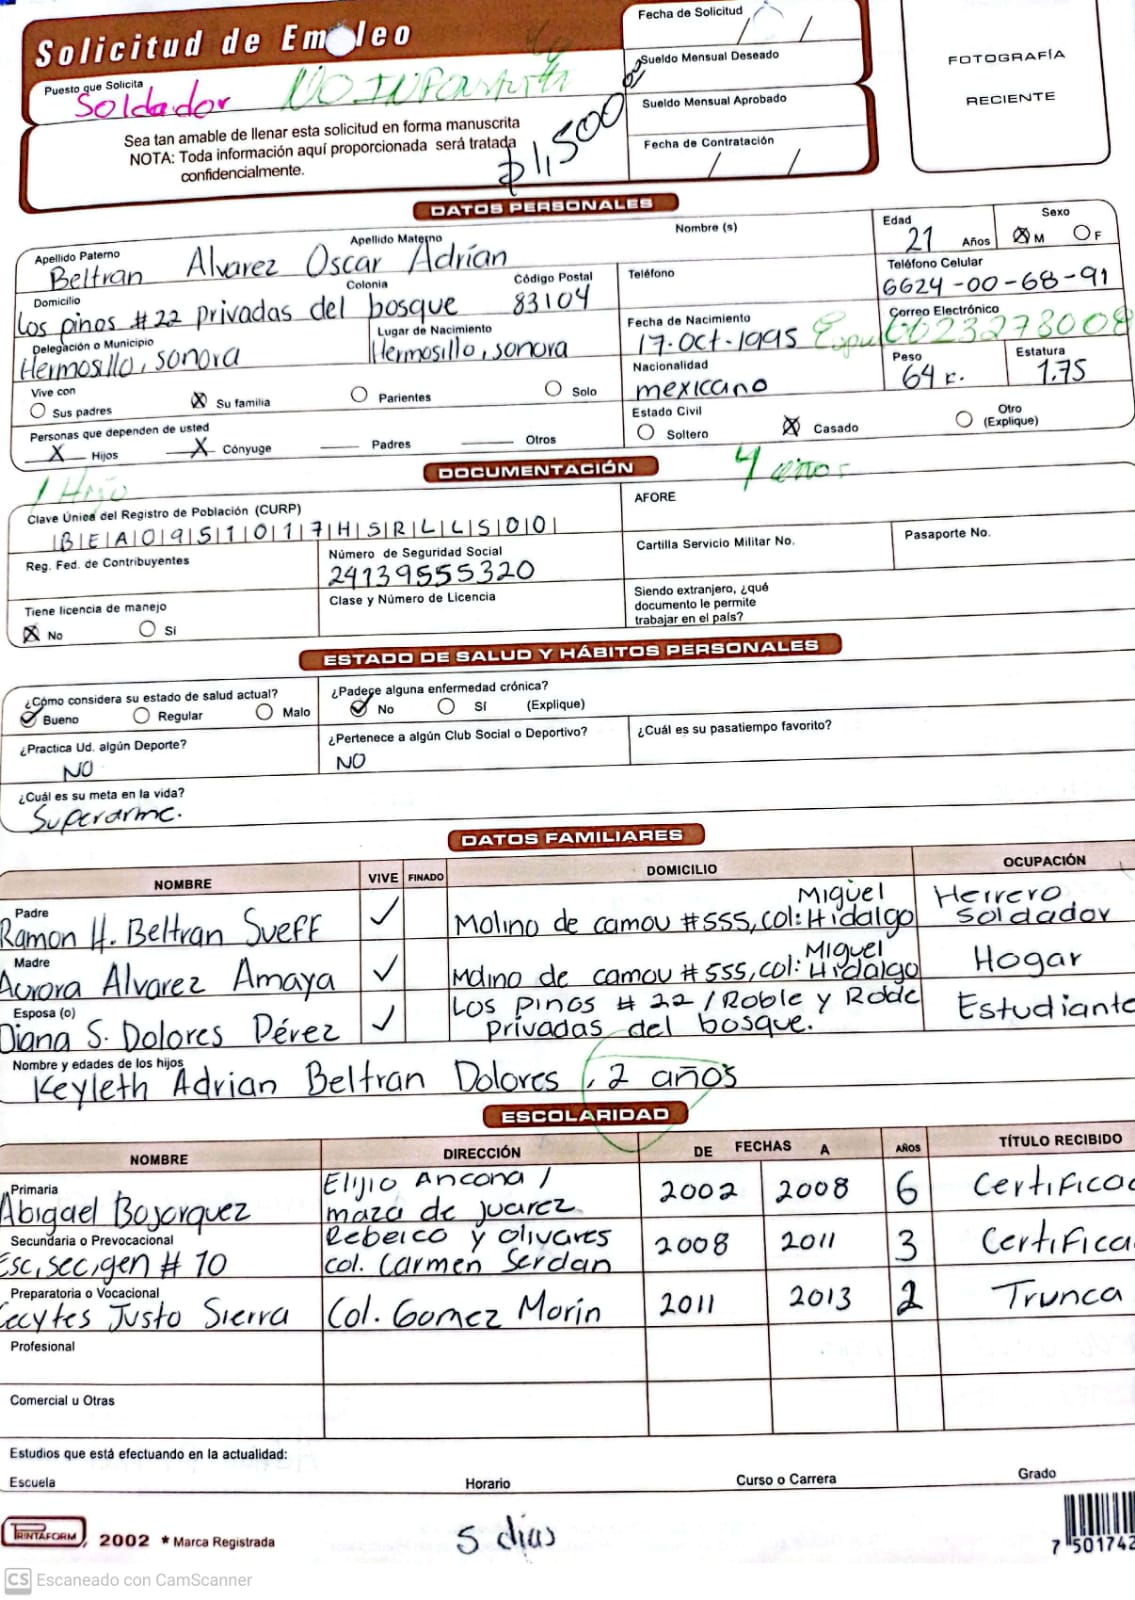 Solicitud de Empleo
Fecha de Solicitud
/ /
Puesto que Solicita
Soldador
NO INFONAVIT
Sueldo Mensual Deseado
$1,500.00
Sueldo Mensual Aprobado
Fecha de Contratación
/ /
FOTOGRAFÍA
RECIENTE
Sea tan amable de llenar esta solicitud en forma manuscrita
NOTA: Toda información aquí proporcionada será tratada
confidencialmente.
DATOS PERSONALES
Apellido Paterno Apellido Materno Nombre (s)
Beltran Alvarez Oscar Adrían
Edad
21 Años
Sexo
M F
Domicilio Colonia Código Postal
Los pinos #22 privadas del bosque 83104
Teléfono
Teléfono Celular
6624-00-68-91
Delegación o Municipio
Hermosillo, sonora
Lugar de Nacimiento
Hermosillo, sonora
Fecha de Nacimiento
17-Oct-1995
Correo Electrónico
6623278008
Nacionalidad
mexicano
Peso
64 k.
Estatura
1.75
Vive con
Sus padres Su familia Parientes Solo
Estado Civil
Soltero Casado Otro (Explique)
Personas que dependen de usted
X Hijos X Cónyuge Padres Otros
1 Hijo
4 años
DOCUMENTACIÓN
Clave Única del Registro de Población (CURP)
BEAO951017HSRLLS00
AFORE
Reg. Fed. de Contribuyentes
Número de Seguridad Social
24139555320
Cartilla Servicio Militar No.
Pasaporte No.
Tiene licencia de manejo
No Si
Clase y Número de Licencia
Siendo extranjero, ¿qué
documento le permite
trabajar en el país?
ESTADO DE SALUD Y HÁBITOS PERSONALES
¿Cómo considera su estado de salud actual?
Bueno Regular Malo
¿Padece alguna enfermedad crónica?
No Sí (Explique)
¿Practica Ud. algún Deporte?
NO
¿Pertenece a algún Club Social o Deportivo?
NO
¿Cuál es su pasatiempo favorito?
¿Cuál es su meta en la vida?
Superarme.
DATOS FAMILIARES
NOMBRE VIVE FINADO DOMICILIO OCUPACIÓN
Padre
Ramon H. Beltran Sueff
Molino de camou #555, col: Miguel Hidalgo
Herrero Soldador
Madre
Aurora Alvarez Amaya
Molino de camou #555, col: Miguel Hidalgo
Hogar
Esposa (o)
Diana S. Dolores Pérez
Los pinos #22 / Roble y Roble
privadas del bosque.
Estudiante
Nombre y edades de los hijos
Keyleth Adrian Beltran Dolores, 2 años
ESCOLARIDAD
NOMBRE DIRECCIÓN DE FECHAS A AÑOS TÍTULO RECIBIDO
Primaria
Abigael Bojorquez
Elijio Ancona /
maza de juarez
2002 2008 6 Certificad
Secundaria o Prevocacional
Esc,sec,gen #10
Rebeico y olivares
col. Carmen Serdan
2008 2011 3 Certifica
Preparatoria o Vocacional
Cecytes Justo Sierra
Col. Gomez Morin
2011 2013 2 Trunca
Profesional
Comercial u Otras
Estudios que está efectuando en la actualidad:
Escuela Horario Curso o Carrera Grado
PRINTAFORM, 2002 * Marca Registrada
5 días
7 501742
CS Escaneado con CamScanner